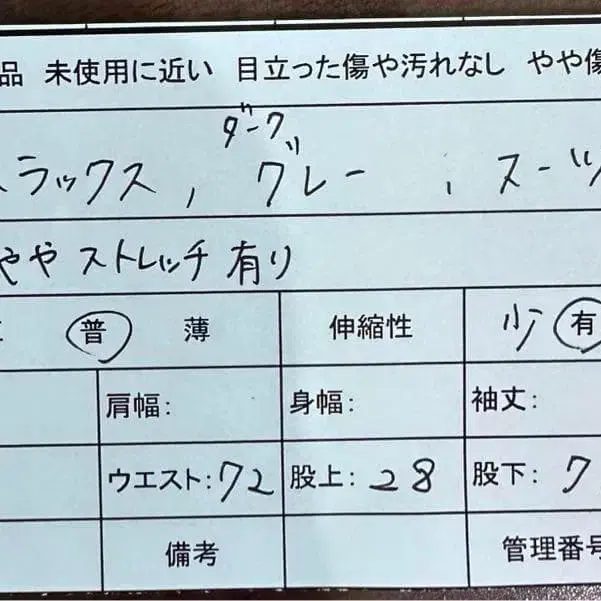 品 未使用に近い 目立った傷や汚れなし やや傷
ダーク
スラックス, グレー , スーツ
やや ストレッチ 有り
普 薄 伸縮性 少 有
肩幅: 身幅: 袖丈:
ウエスト:72 股上:28 股下:7
備考 管理番号